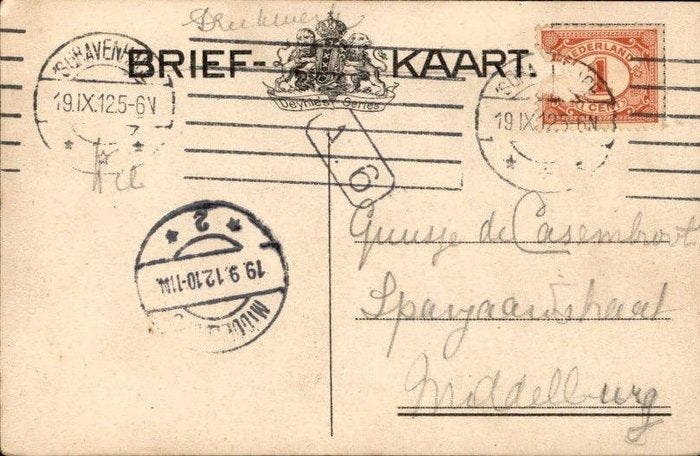 Drukwerk
BRIEF- KAART.
Ueynees Series
'SGRAVENH
19.IX.12.5-6V
NEDERLAND
1
CENT
19.IX.12.5-6N
1
A.6
2
19.9.12.10-11N.
MIDDEL
Guusje de Casembroot
Spanjaardstraat
Middelburg